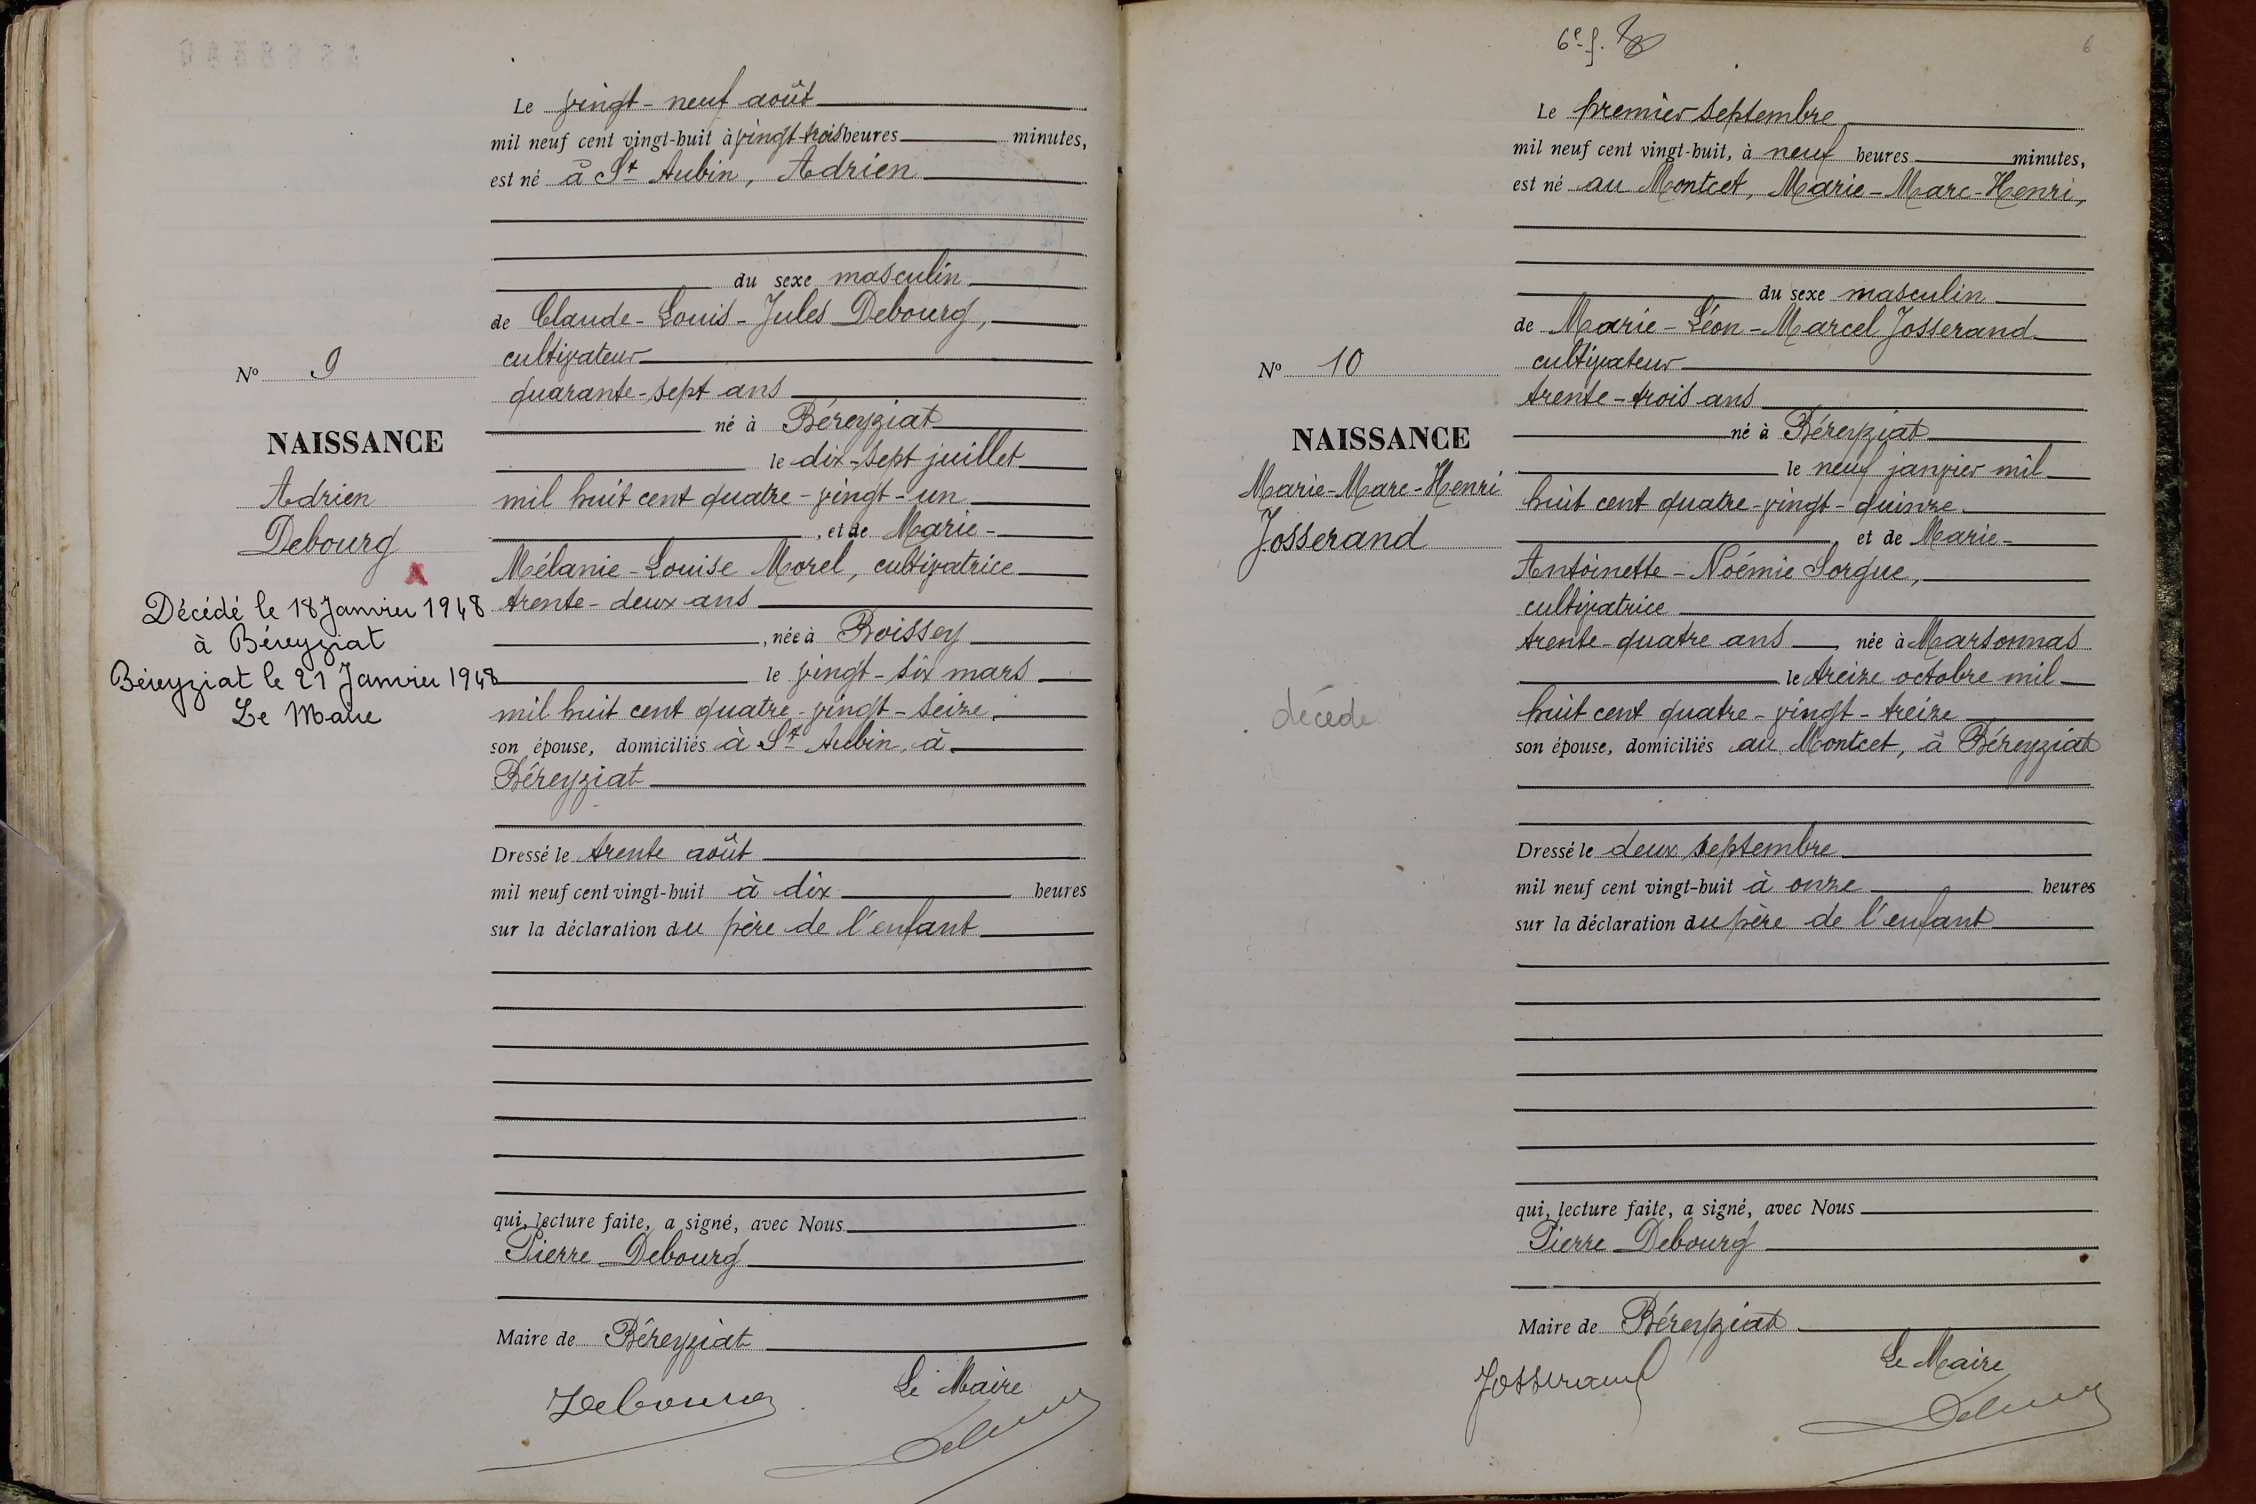 Le vingt-neuf août
mil neuf cent vingt-huit à vingt-trois heures minutes,
est né à St Aubin, Adrien
du sexe masculin
de Claude-Louis-Jules Debourg,
cultivateur
quarante-sept ans
né à Béreyziat
le dix-sept juillet
mil huit cent quatre-vingt-un
, et de Marie-
Mélanie-Louise Morel, cultivatrice
trente-deux ans
, née à Boissey
le vingt-six mars
mil huit cent quatre-vingt-seize,
son épouse, domiciliés à St Aubin, à
Béreyziat
Dressé le trente août
mil neuf cent vingt-huit à dix heures
sur la déclaration du père de l'enfant
qui, lecture faite, a signé, avec Nous
Pierre Debourg
Maire de Béreyziat
Le Maire
Debourg
No 9
NAISSANCE
Adrien
Debourg
X
Décédé le 18 Janvier 1948
à Béreyziat
Béreyziat le 21 Janvier 1948
Le Maire
6e f.
6
Le premier septembre
mil neuf cent vingt-huit, à neuf heures minutes,
est né au Montcet, Marie-Marc-Henri,
du sexe masculin
de Marie-Léon-Marcel Josserand
cultivateur
trente-trois ans
né à Béreyziat
le neuf janvier mil
huit cent quatre-vingt-quinze
, et de Marie-
Antoinette-Noémie Sorgue,
cultivatrice
trente-quatre ans , née à Marsonnas
le treize octobre mil
huit cent quatre-vingt-treize
son épouse, domiciliés au Montcet, à Béreyziat
Dressé le deux septembre
mil neuf cent vingt-huit à onze heures
sur la déclaration du père de l'enfant
qui, lecture faite, a signé, avec Nous
Pierre Debourg
Maire de Béreyziat
Le Maire
Josserand
No 10
NAISSANCE
Marie-Marc-Henri
Josserand
décédé